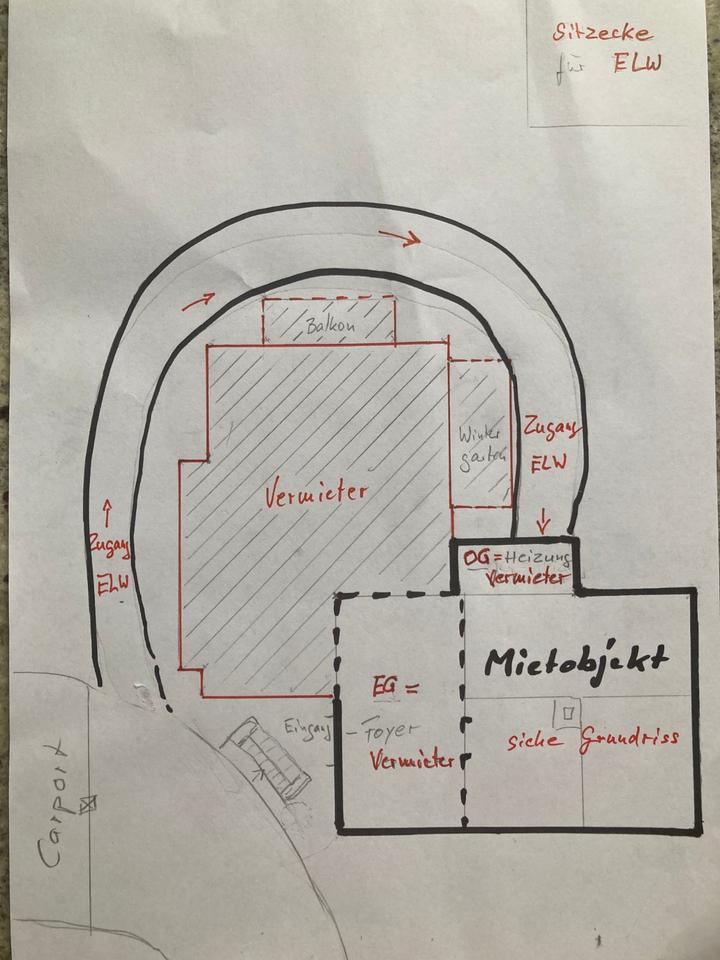 Sitzecke
für ELW
Balkon
Zugang
ELW
Winter
garten
Vermieter
Zugang
ELW
OG=Heizung
Vermieter
Mietobjekt
EG =
Eingang - Foyer
Vermieter
siehe Grundriss
Carport